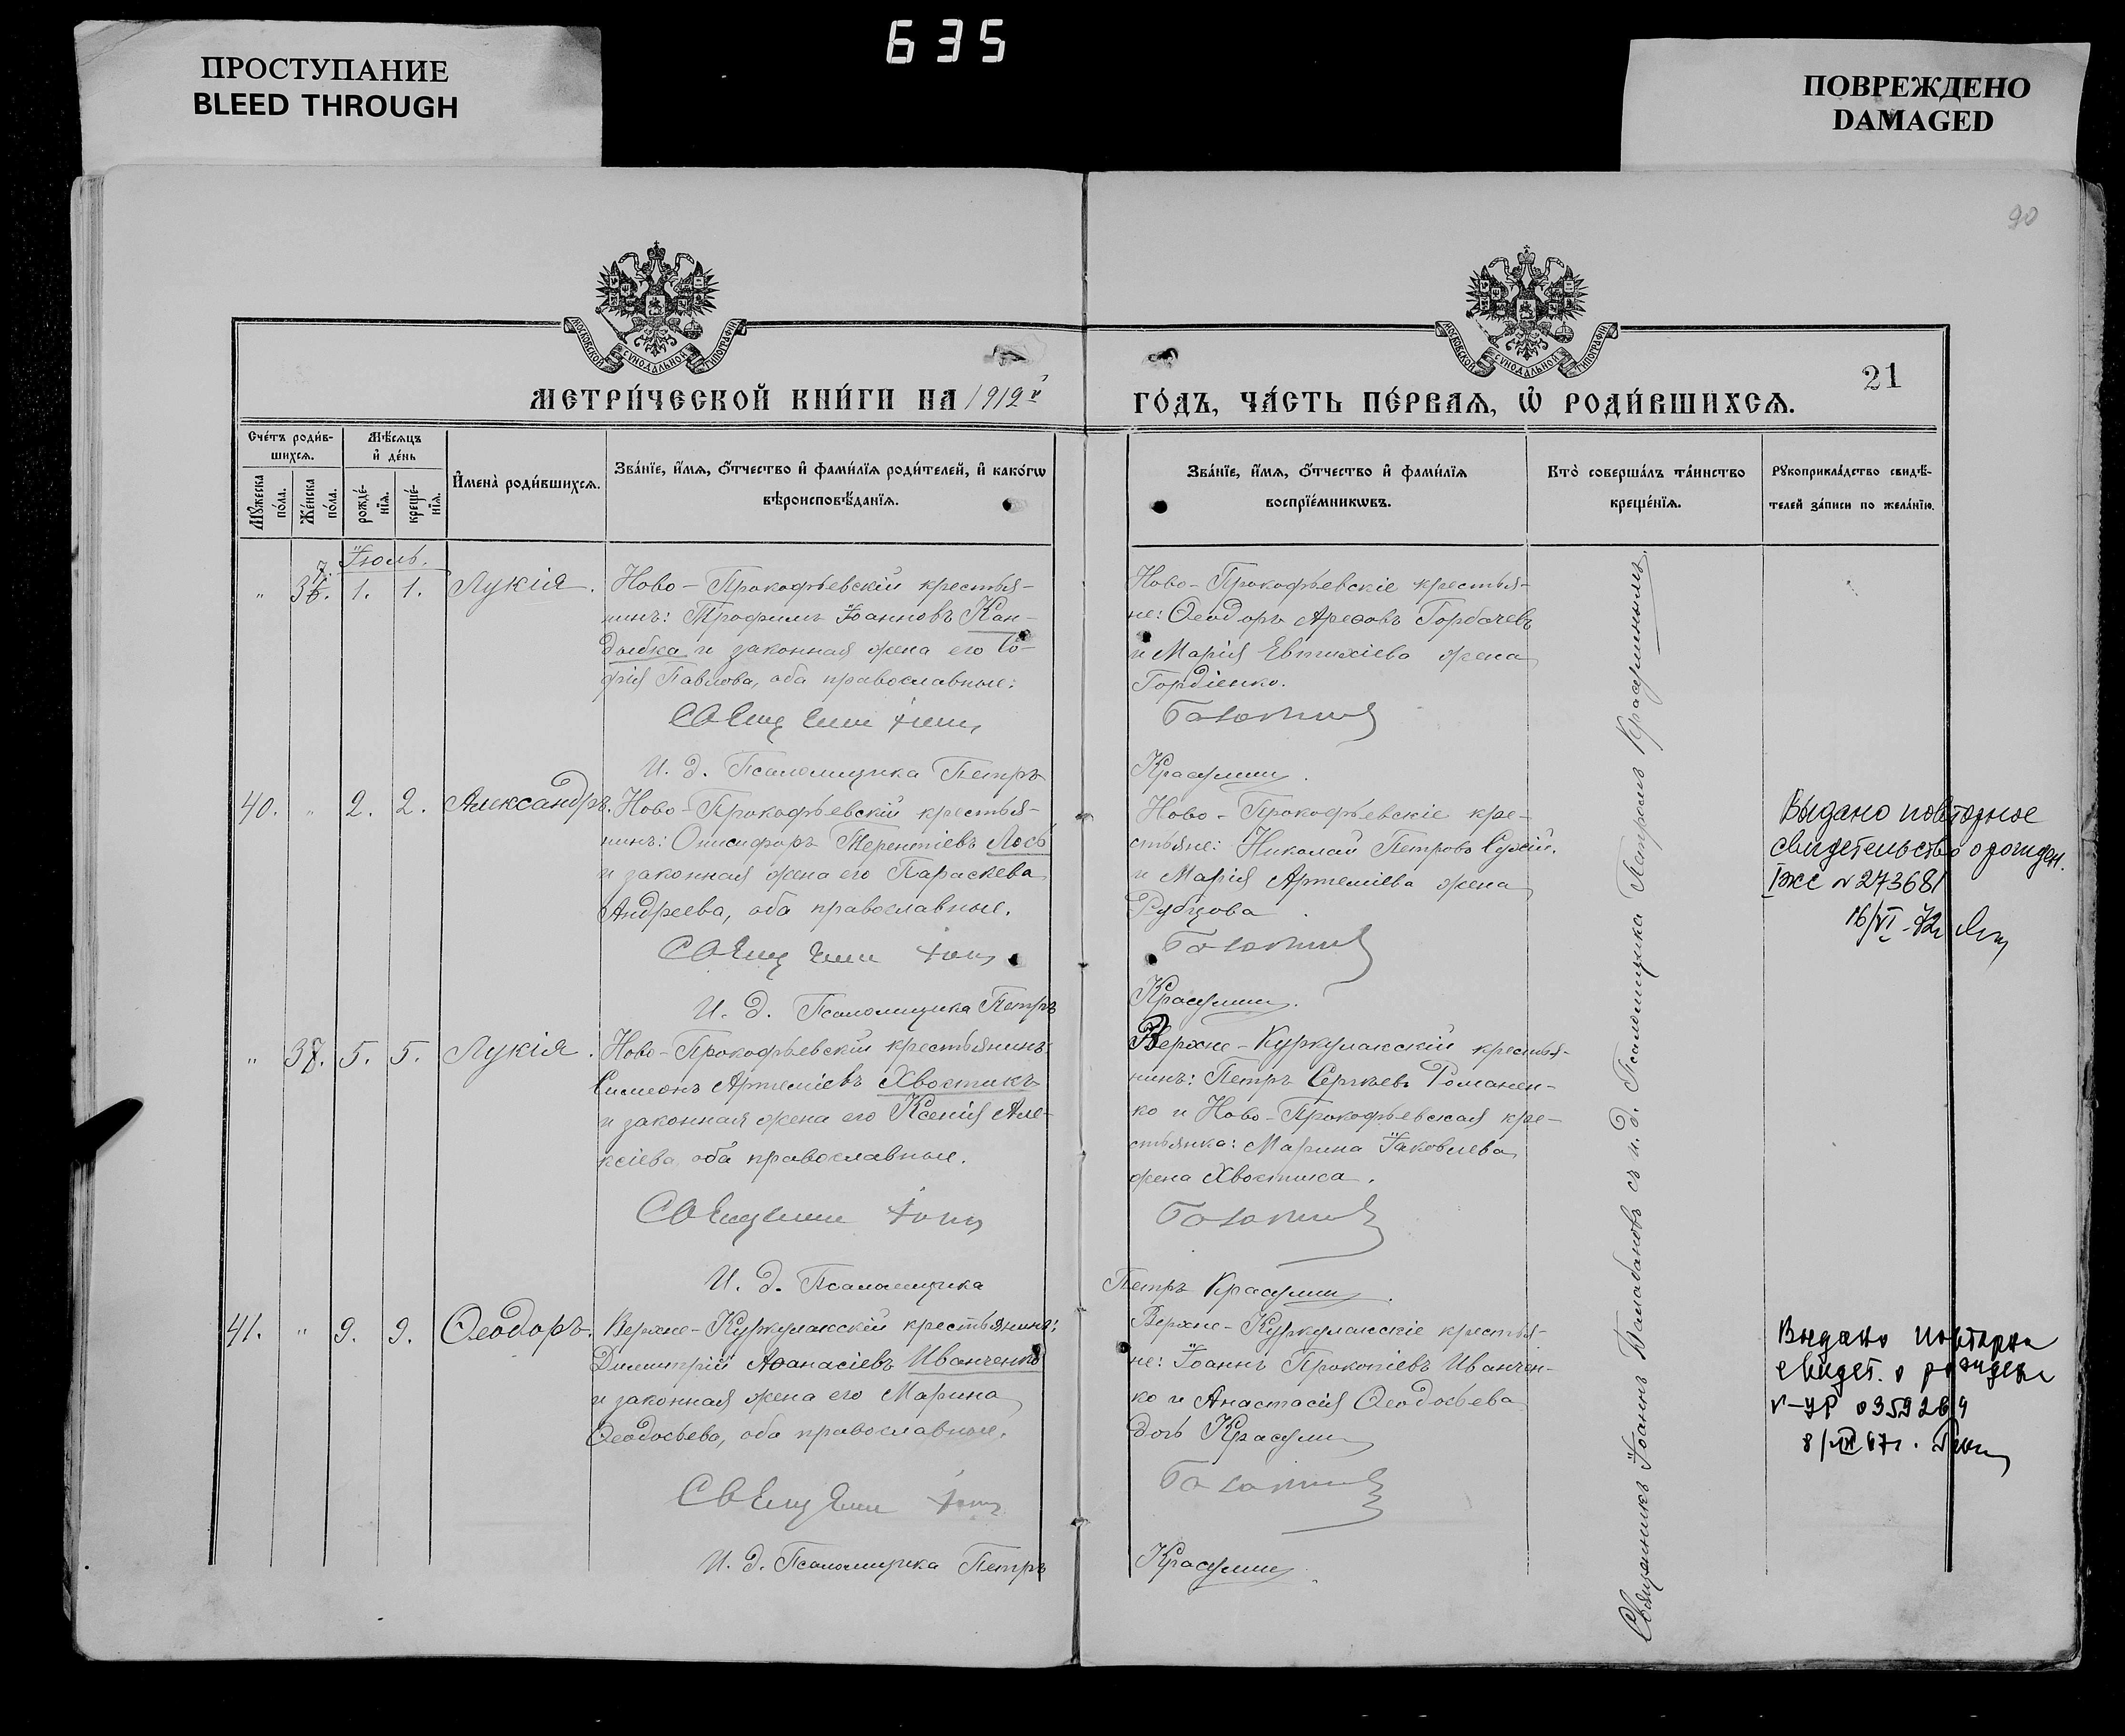 635
ПРОСТУПАНИЕ
BLEED THROUGH
ПОВРЕЖДЕНО
DAMAGED
90
МОСКОВСКОЙ СѴНОДАЛЬНОЙ ТИПОГРАФІИ
МОСКОВСКОЙ СѴНОДАЛЬНОЙ ТИПОГРАФІИ
21
МЕТРИ́ЧЕСКОЙ КНИ́ГИ НА 1912й
ГО́ДЪ, ЧА́СТЬ ПЕ́РВАѦ, Ѡ҆ РОДИ́ВШИХСѦ.
Сче́тъ роди́в-
шихсѧ.
Мѣ́сѧцъ
и҆ де́нь
Мꙋ́жеска по́ла.
Же́нска по́ла.
рожде́-нїѧ.
креще́-нїѧ.
И҆мена̀ роди́вшихсѧ.
Зва́нїе, и҆́мѧ, о҆́тчество и҆ фами́лїѧ роди́телей, и҆ како́гѡ
вѣроисповѣ́данїѧ.
Зва́нїе, и҆́мѧ, о҆́тчество и҆ фами́лїѧ
воспрїе́мникѡвъ.
Кто̀ соверша́лъ та́инство
креще́нїѧ.
Рꙋкоприкла́дство свидѣ́-
телей за́писи по жела́нїю.
Іюль.
" 37. 1. 1. Лукія.
Ново-Прокофьевскій крестья-
нинъ: Трофимъ Іоанновъ Кан-
дыбка и законная жена его Со-
фія Павлова, оба православные:
Священ Іоан
И. д. Псаломщика Петръ
Ново-Прокофьевскіе крестья-
не: Ѳеодоръ Арефовъ Горбачевъ
и Марія Евтихіева жена
Гордіенко.
Красулин.
40. " 2. 2. Александръ.
Ново-Прокофьевскій крестья-
нинъ: Онисифоръ Терентіевъ Лось
и законная жена его Параскева
Андреева, оба православные.
Священ Іоан
И. д. Псаломщика Петръ
Ново-Прокофьевскіе кре-
стьяне: Николай Петровъ Сухій.
и Марія Артеміева жена
Рубцова
Красулин.
Выдано повторное
свидетельство о рожден.
№ 273681
16/VI-72г
" 38. 5. 5. Лукія.
Ново-Прокофьевскій крестьянинъ
Симеонъ Артеміевъ Хвостикъ
и законная жена его Ксенія Але-
ксіева, оба православные.
Священ Іоан
И. д. Псаломщика
Верхне-Куркулакскій крестья-
нинъ: Петръ Сергѣевъ Романен-
ко и Ново-Прокофьевская кре-
стьянка: Марина Іаковлева
жена Хвостика.
Петръ Красулин.
41. " 9. 9. Ѳеодоръ.
Верхне-Куркулакскій крестьянинъ:
Димитрій Аѳанасіевъ Иванченко
и законная жена его Марина
Ѳеодосьева, оба православные.
Священ Іоан
И. д. Псаломщика Петръ
Верхне-Куркулакскіе крестья-
не: Іоаннъ Прокопіевъ Иванчен-
ко и Анастасія Ѳеодосьева
дочь Красулин
Красулин
Выдано повторно
свидет. о рожден
0359264
Священникъ Іоаннъ съ и. д. Псаломщика Петромъ Красулинымъ.